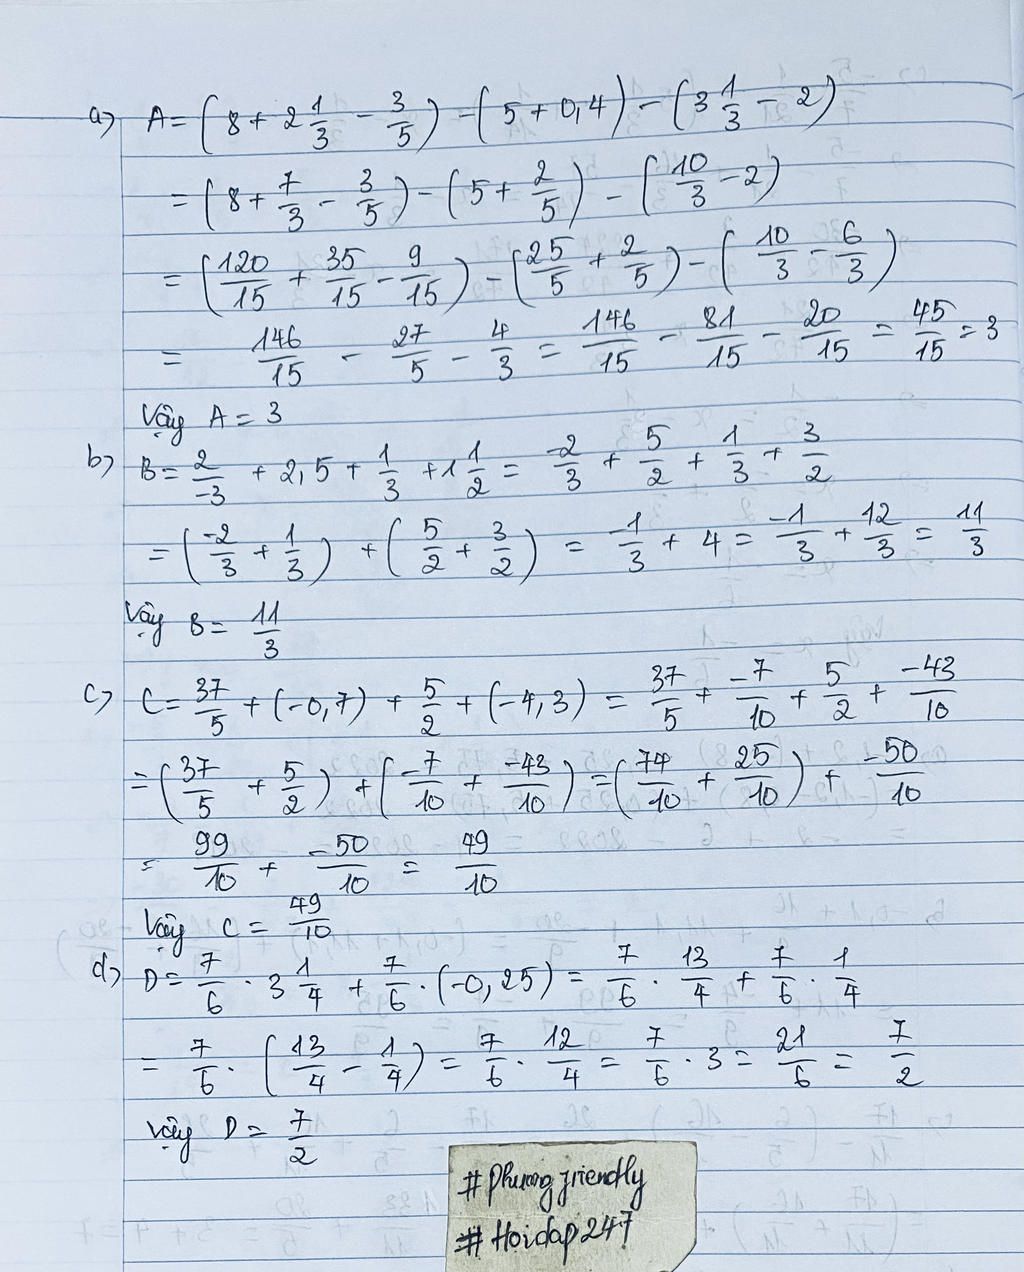 a) A = (8 + 2 1/3 - 3/5) - (5 + 0,4) - (3 1/3 - 2)
= (8 + 7/3 - 3/5) - (5 + 2/5) - (10/3 - 2)
= (120/15 + 35/15 - 9/15) - (25/5 + 2/5) - (10/3 - 6/3)
= 146/15 - 27/5 - 4/3 = 146/15 - 81/15 - 20/15 = 45/15 = 3
Vậy A = 3
b) B = 2/-3 + 2,5 + 1/3 + 1 1/2 = -2/3 + 5/2 + 1/3 + 3/2
= (-2/3 + 1/3) + (5/2 + 3/2) = -1/3 + 4 = -1/3 + 12/3 = 11/3
Vậy B = 11/3
c) C = 37/5 + (-0,7) + 5/2 + (-4,3) = 37/5 + -7/10 + 5/2 + -43/10
= (37/5 + 5/2) + (-7/10 + -43/10) = (74/10 + 25/10) + -50/10
= 99/10 + -50/10 = 49/10
Vậy C = 49/10
d) D = 7/6 . 3 1/4 + 7/6 . (-0,25) = 7/6 . 13/4 + 7/6 . 1/4
= 7/6 . (13/4 - 1/4) = 7/6 . 12/4 = 7/6 . 3 = 21/6 = 7/2
Vậy D = 7/2
# Phuongfriendly
# Hoidap247